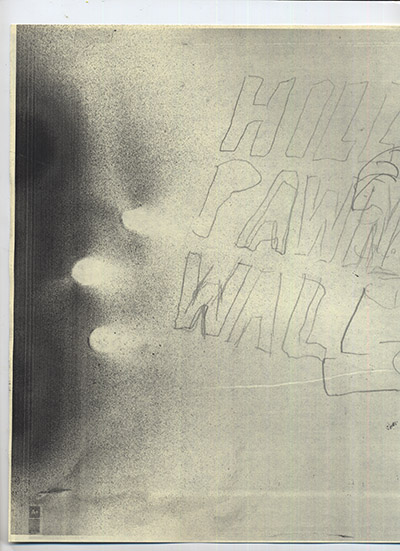 HILL
PAWN
WALL